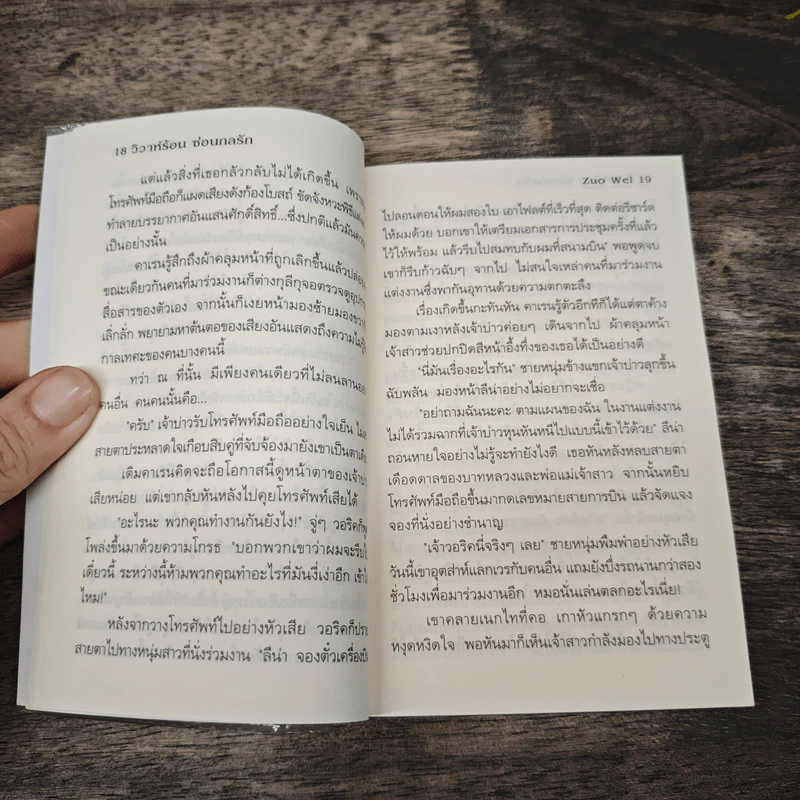 18 วิวาห์ร้อน ซ่อนกลรัก
แต่แล้วสิ่งที่เธอกลัวกลับไม่ได้เกิดขึ้น
โทรศัพท์มือถือก็แผดเสียงดังก้องโบสถ์ ขัดจังหวะพิธีแต่ง
ทำลายบรรยากาศอันแสนศักดิ์สิทธิ์...ซึ่งปกติแล้วมันควร
เป็นอย่างนั้น
คาเรนรู้สึกถึงผ้าคลุมหน้าที่ถูกเลิกขึ้นแล้วปล่อย
ขณะเดียวกันคนที่มาร่วมงานก็ต่างกุลีกุจอตรวจดูอุปกรณ์
สื่อสารของตัวเอง จากนั้นก็เงยหน้ามองซ้ายมองขวา
เลิ่กลั่ก พยายามหาต้นตอของเสียงอันแสดงถึงความไม่รู้
กาลเทศะของคนบางคนนี้
ทว่า ณ ที่นั้น มีเพียงคนเดียวที่ไม่ลนลาน
คนอื่น คนคนนั้นคือ...
"ครับ" เจ้าบ่าวรับโทรศัพท์มือถืออย่างใจเย็น
สายตาประหลาดใจเกือบสิบคู่ที่จับจ้องมายังเขาเป็นตาเดียว
เดิมคาเรนคิดจะถือโอกาสนี้ดูหน้าตาของเจ้าบ่าว
เสียหน่อย แต่เขากลับหันหลังไปคุยโทรศัพท์เสียได้
"อะไรนะ พวกคุณทำงานกันยังไง!" จู่ๆ วอริคก็
โพล่งขึ้นมาด้วยความโกรธ "บอกพวกเขาว่าผมจะรีบไป
เดี๋ยวนี้ ระหว่างนี้ห้ามพวกคุณทำอะไรที่มันงี่เง่าอีก
ไหม!"
หลังจากวางโทรศัพท์ไปอย่างหัวเสีย วอริคก็
สายตาไปทางหนุ่มสาวที่นั่งร่วมงาน "ลีน่า จองตั๋วเครื่องบิน
Zuo Wei 19
ไปลอนดอนให้ผมสองใบ เอาไฟลต์ที่เร็วที่สุด ติดต่อริชาร์ด
ให้ผมด้วย บอกเขาให้เตรียมเอกสารการประชุมครั้งที่แล้ว
ไว้ให้พร้อม แล้วรีบไปสมทบกับผมที่สนามบิน" พอพูดจบ
เขาก็รีบก้าวฉับๆ จากไป ไม่สนใจเหล่าคนที่มาร่วมงาน
แต่งงานซึ่งพากันอุทานด้วยความตกตะลึง
เรื่องเกิดขึ้นกะทันหัน คาเรนรู้ตัวอีกทีก็ได้แต่ตาค้าง
มองตามเงาหลังเจ้าบ่าวค่อยๆ เดินจากไป ผ้าคลุมหน้า
เจ้าสาวช่วยปกปิดสีหน้าอึ้งทึ่งของเธอได้เป็นอย่างดี
"นี่มันเรื่องอะไรกัน" ชายหนุ่มข้างแขกเจ้าบ่าวลุกขึ้น
ฉับพลัน มองหน้าลีน่าอย่างไม่อยากจะเชื่อ
"อย่าถามฉันนะคะ ตามแผนของฉัน ในงานแต่งงาน
ไม่ได้รวมฉากที่เจ้าบ่าวหุนหันหนีไปแบบนี้เข้าไว้ด้วย" ลีน่า
ถอนหายใจอย่างไม่รู้จะทำยังไงดี เธอหันหลังหลบสายตา
เดือดดาลของบาทหลวงและพ่อแม่เจ้าสาว จากนั้นหยิบ
โทรศัพท์มือถือขึ้นมากดเลขหมายสายการบิน แล้วจัดแจง
จองที่นั่งอย่างชำนาญ
"เจ้าวอริคนี่จริงๆ เลย" ชายหนุ่มพึมพำอย่างหัวเสีย
วันนี้เขาอุตส่าห์แลกเวรกับคนอื่น แถมยังบึ่งรถนานกว่าสอง
ชั่วโมงเพื่อมาร่วมงานอีก หมอนั่นเล่นตลกอะไรเนี่ย!
เขาคลายเนกไทที่คอ เกาหัวแกรกๆ ด้วยความ
หงุดหงิดใจ พอหันมาก็เห็นเจ้าสาวกำลังมองไปทางประตู